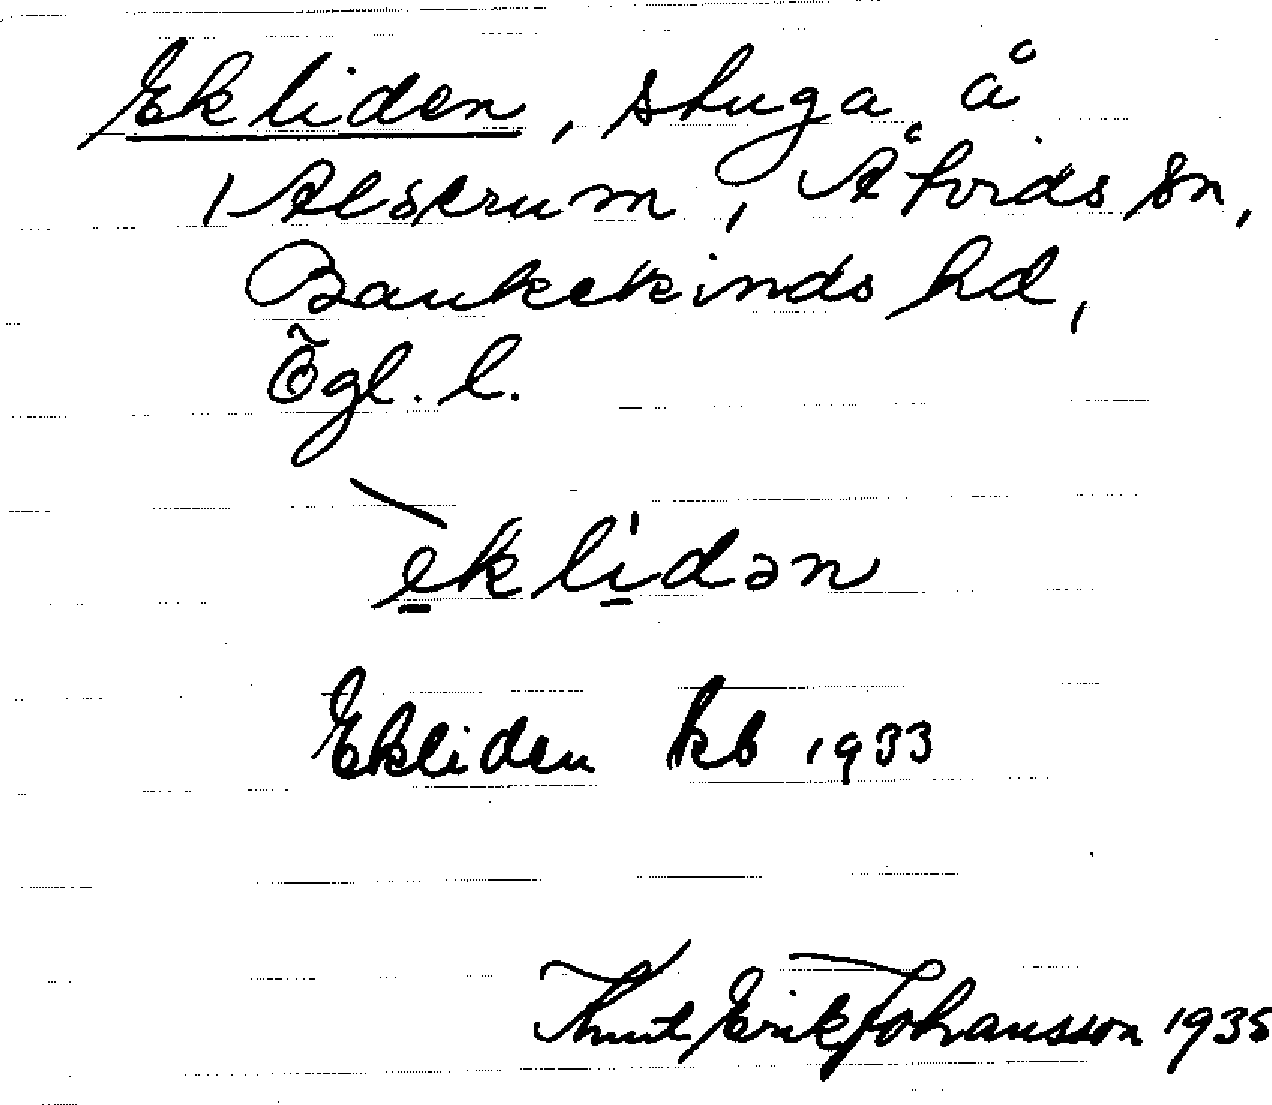 Ekliden, stuga å
1 Alserum, Åtvids sn,
Bankekinds hd,
Ögl. l.
`ekli̱dən
Ekliden kb 1933
Knut Erik Johansson 1935